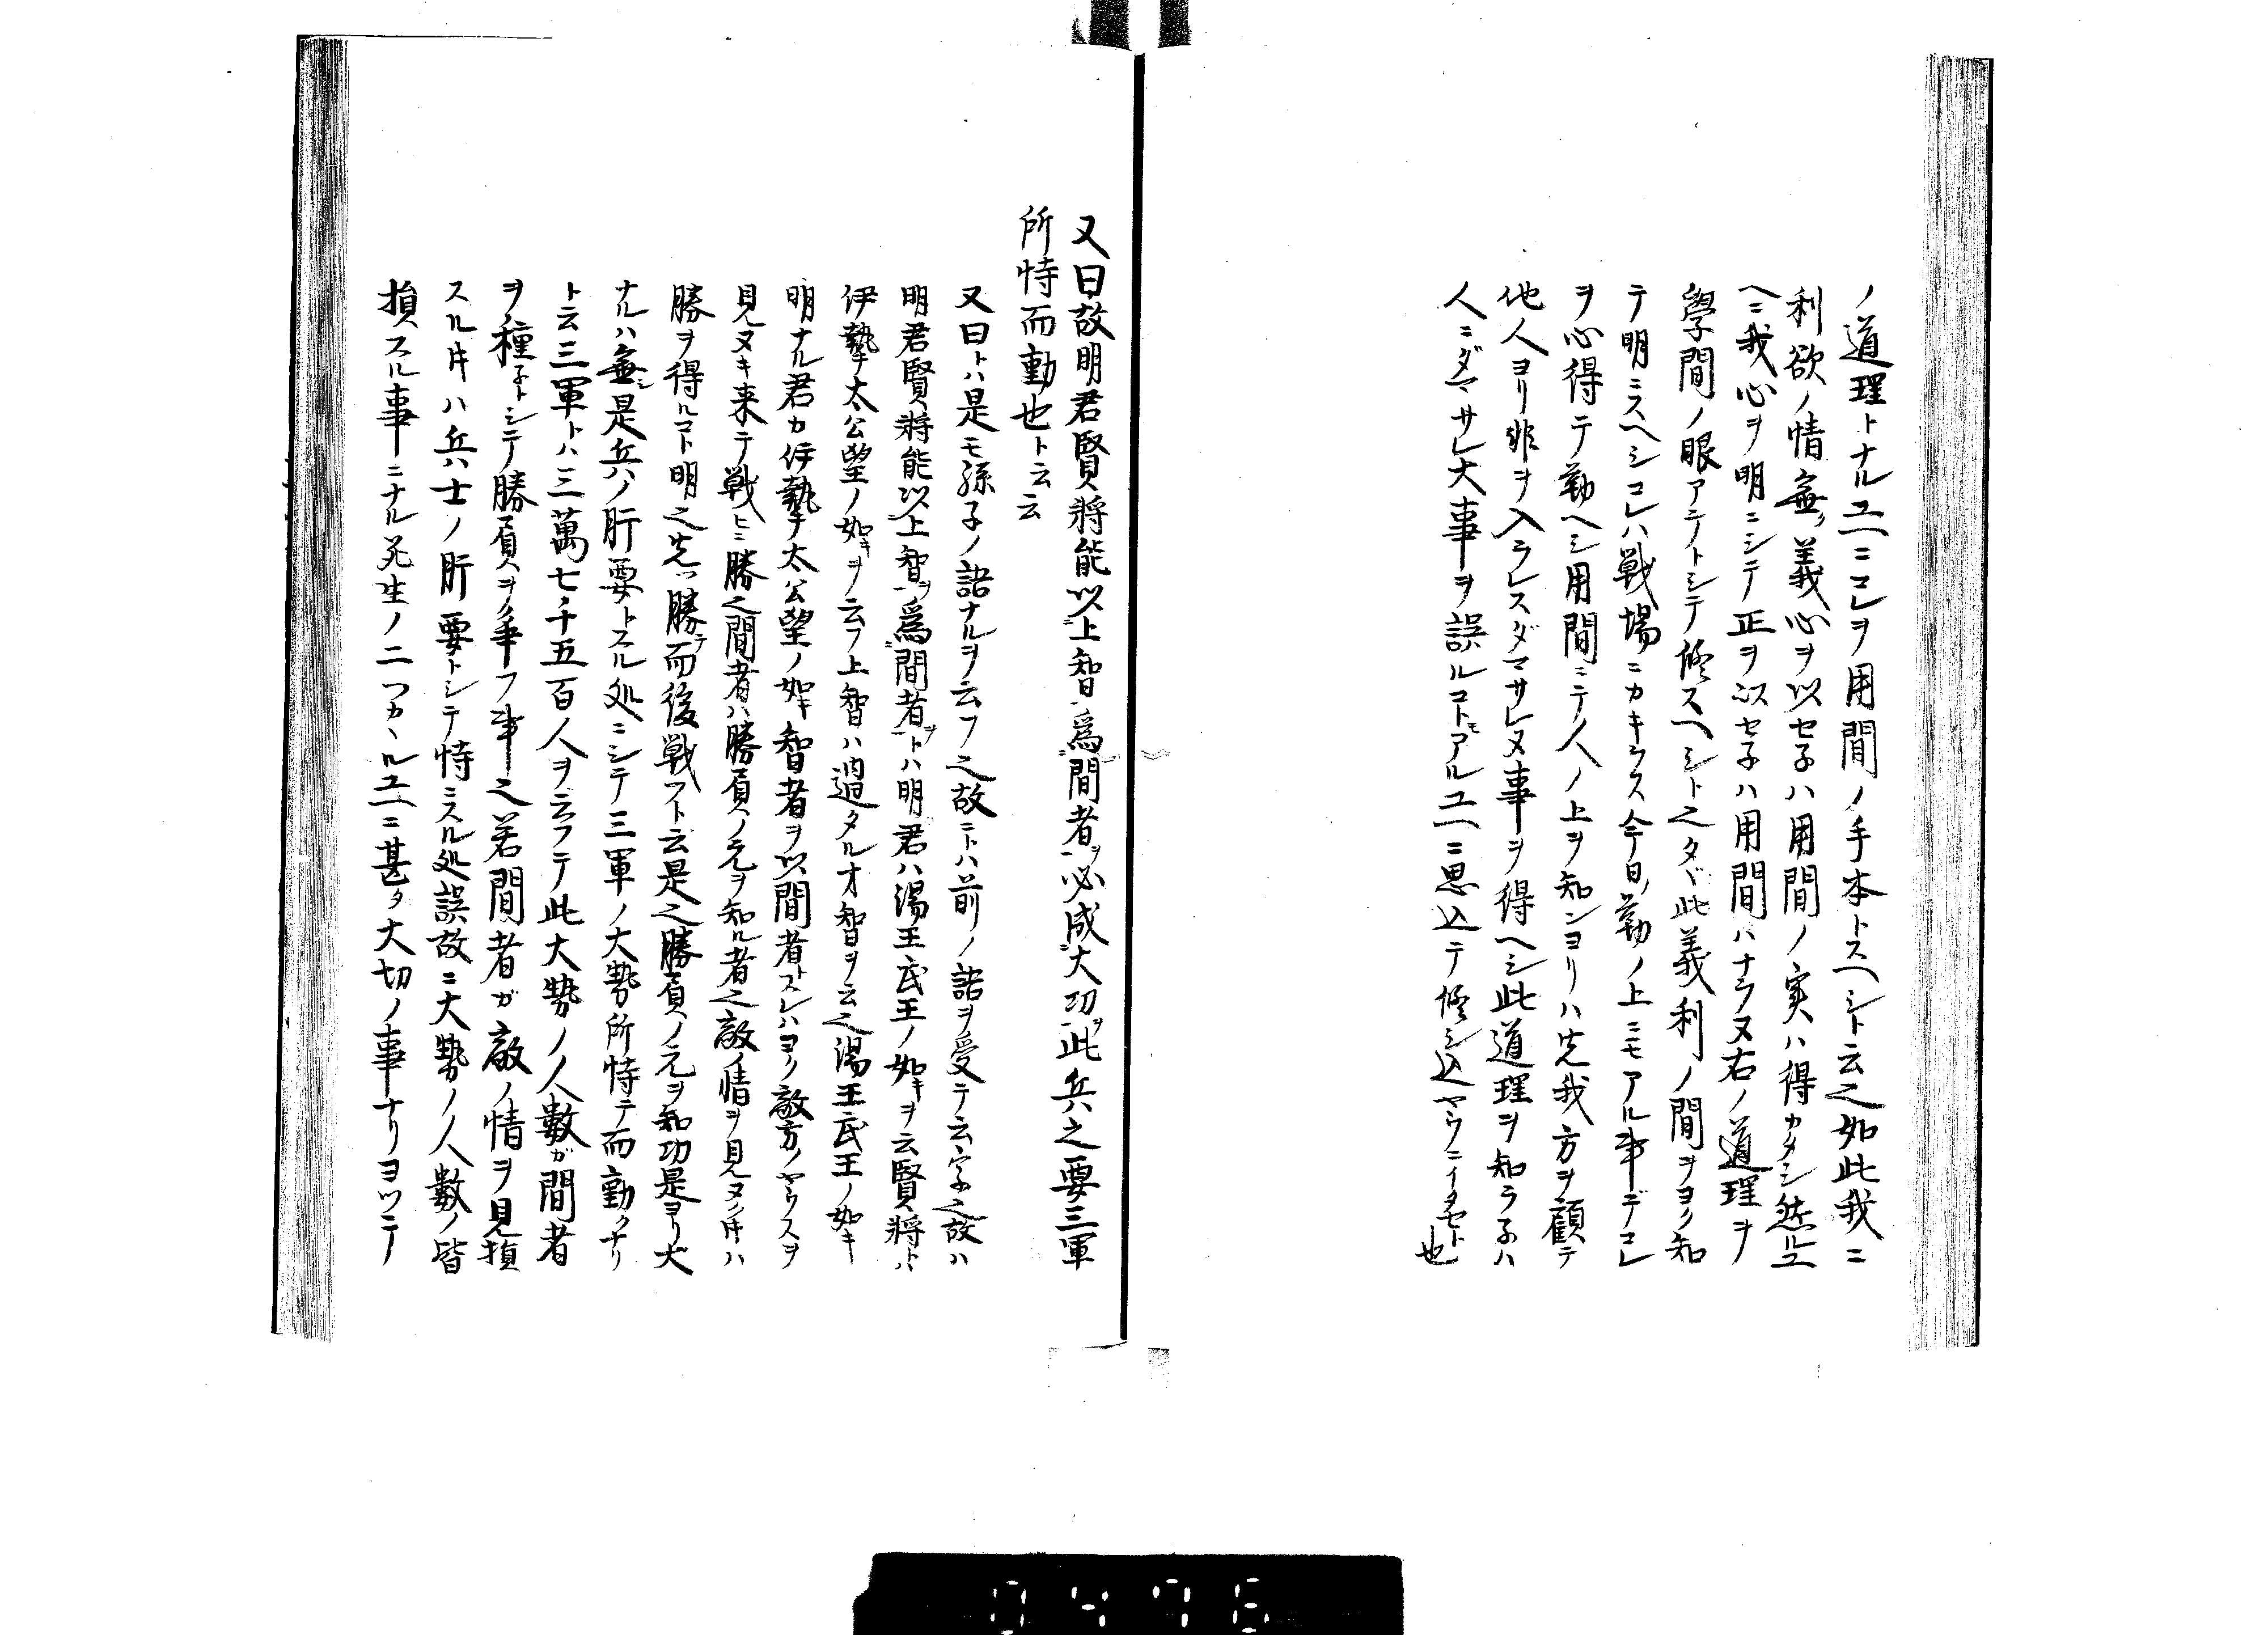 ノ道理トナルユヘニコレヲ用間ノ手本トスヘシト云之如此我ニ
利欲ノ情無ク義心ヲ以セ子ハ用間ノ実ハ得カタシ然ルユ
ヘニ我心ヲ明ニシテ正ヲ以セ子ハ用間ハナラヌ右ノ道理ヲ
學間ノ眼アテトシテ修スヘシト之タヾ此義利ノ間ヲヨク知
テ明ニスヘシコレハ戦場ニカキラス今日ノ勤ノ上ニモアル事デコレ
ヲ心得テ勤ヘシ用間ニテ人ノ上ヲ知ンヨリハ先我方ヲ顧テ
他人ヨリ非ヲ入ラレスダマサレヌ事ヲ得ヘシ此道理ヲ知ラ子ハ
人ニダマサレ大事ヲ誤ルコトモアルユヘニ思込テ修シ込ヤウニイタセト也
又曰故明君賢將能以上智ヲ爲間者ヲ必成大功ヲ此兵之要三軍
所恃而動也ト云云
又曰トハ是モ孫子ノ語ナルヲ云フ之故ニトハ前ノ語ヲ受テ云字之故ハ
明君賢將能以上智ヲ爲間者ヲトハ明君ハ湯王武王ノ如キヲ云賢將トハ
伊摯太公望ノ如キヲノ云フ上智ハ過タル才智ヲ云之湯王武王ノ如キ
明ナル君カ伊摯太公望ノ如キ智者ヲ以間者トスレハヨク敵方ノヤウスヲ
見ヌキ来テ戦ヒニ勝之間者ハ勝負ノ元ヲ知ル者之敵ノ情ヲ見ヌク片ハ
勝ヲ得ルコト明之先ツ勝テ而後戦フト云是之勝負ノ元ヲ知功是ヨリ大
ナルハ無シ是兵ノ肝要トスル処ニシテ三軍ノ大勢所恃テ而動クナリ
ト云三軍トハ三萬七千五百人ヲ云フテ此大勢ノ人數ガ間者
ヲ種子トシテ勝負ヲ争フ事之若間者ガ敵ノ情ヲ見損
スル片ハ兵士ノ肝要トシテ恃ミスル処誤故ニ大勢ノ人數ノ皆
損スル事ニナル死生ノ二ツカヽルユヘニ甚タ大切ノ事ナリヨツテ